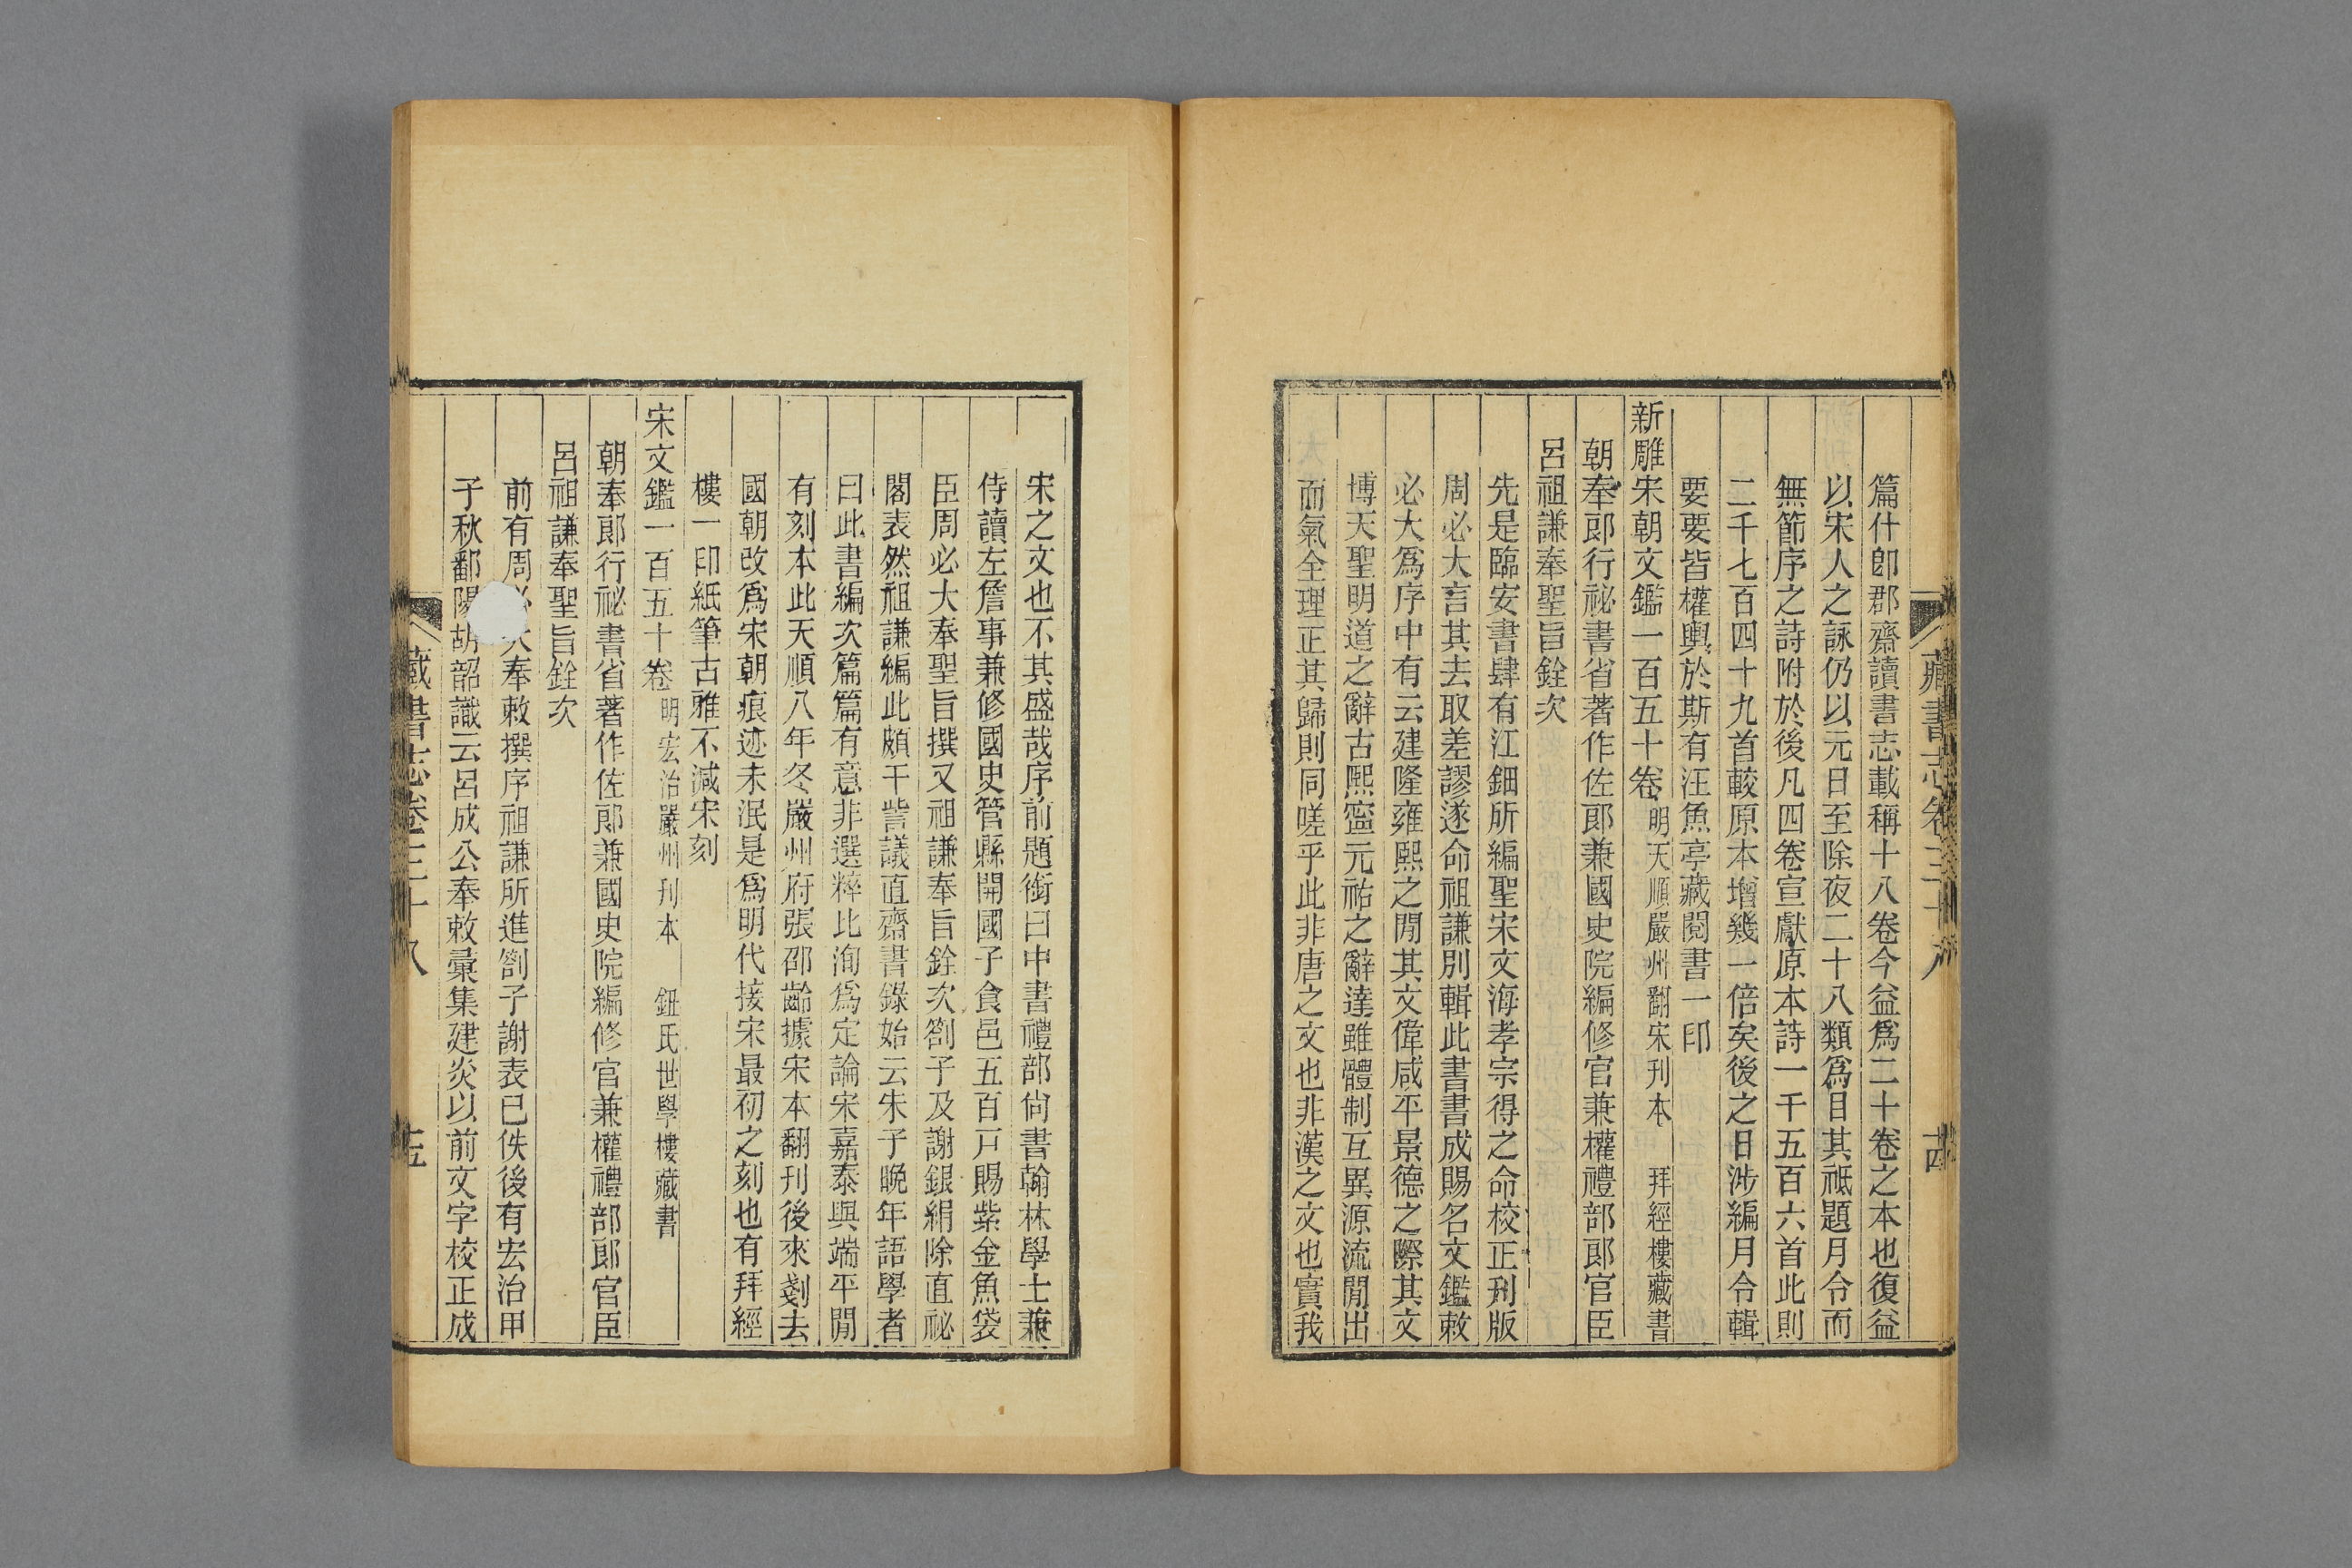 藏書志卷三十八 十四
篇什卽郡齋讀書志載稱十八卷今益爲二十卷之本也復益
以宋人之詠仍以元日至除夜二十八類爲目其祗題月令而
無節序之詩附於後凡四卷宣獻原本詩一千五百六首此則
二千七百四十九首較原本增幾一倍矣後之日涉編月令輯
要要皆權輿於斯有汪魚亭藏閱書一印
新雕宋朝文鑑一百五十卷 明天順嚴州翻宋刊本 拜經樓藏書
朝奉郎行祕書省著作佐郎兼國史院編修官兼權禮部郎官臣
呂祖謙奉聖旨銓次
先是臨安書肆有江鈿所編聖宋文海孝宗得之命校正刋版
周必大言其去取差謬遂命祖謙別輯此書書成賜名文鑑敕
必大爲序中有云建隆雍熙之閒其文偉咸平景德之際其文
博天聖明道之辭古熙寧元祐之辭達雖體制互異源流閒出
而氣全理正其歸則同嗟乎此非唐之文也非漢之文也實我
宋之文也不其盛哉序前題銜曰中書禮部尙書翰林學士兼
侍讀左詹事兼修國史管縣開國子食邑五百戸賜紫金魚袋
臣周必大奉聖旨撰又祖謙奉旨銓次劄子及謝銀絹除直祕
閣表然祖謙編此頗干訾議直齋書錄始云朱子晚年語學者
曰此書編次篇篇有意非選粹比洵爲定論宋嘉泰與端平閒
有刻本此天順八年冬嚴州府張邵齡據宋本翻刊後來剗去
國朝改爲宋朝痕迹未泯是爲明代接宋最初之刻也有拜經
樓一印紙筆古雅不減宋刻
宋文鑑一百五十卷 明宏治嚴州刊本 鈕氏世學樓藏書
朝奉郎行祕書省著作佐郎兼國史院編修官兼權禮部郎官臣
呂祖謙奉聖旨銓次
前有周必大奉敕撰序祖謙所進劄子謝表已佚後有宏治甲
子秋鄱陽胡韶識云呂成公奉敕彙集建炎以前文字校正成
藏書志卷三十八 十五